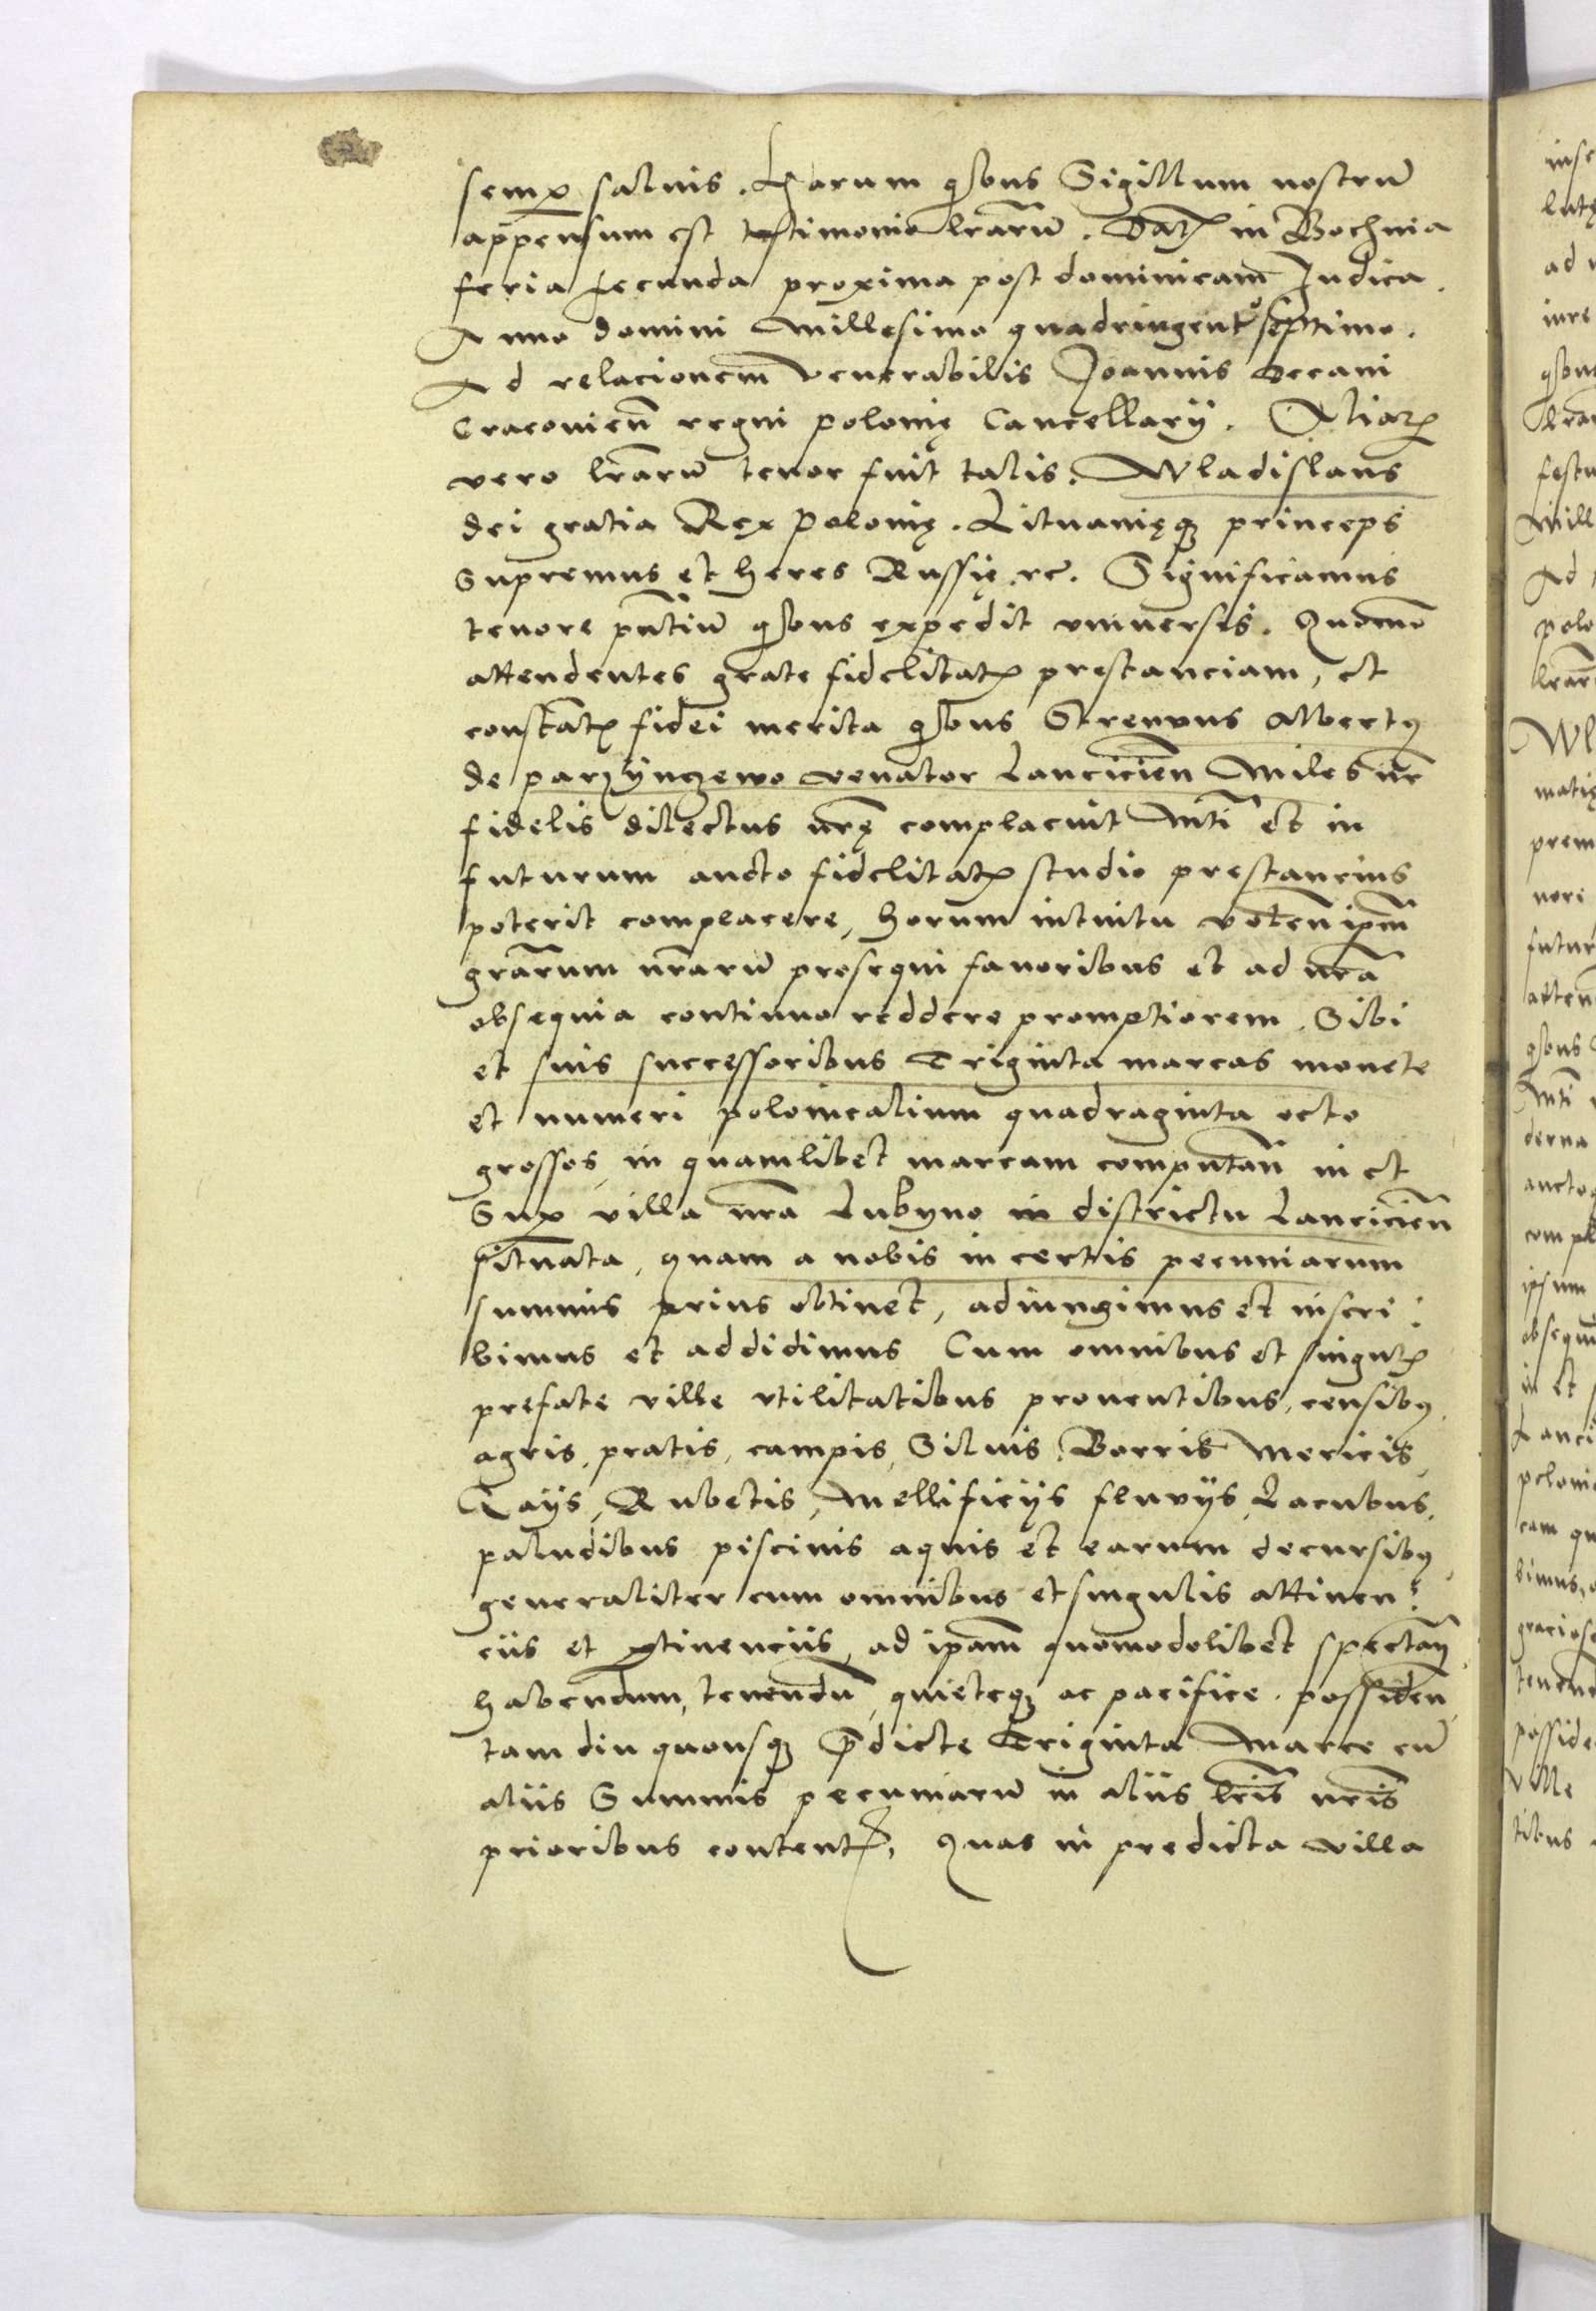 semp salvis. Harum qſbus Sigillum nostrū
appensum est testimonio lrarū. Datꝭ in Bochnia
feria secunda proxima post dominicam Judica.
Anno domini Millesimo quadringentᵒ septimo.
Ad relacionem venerabilis Joannis decani
Cracovien̄ regni polonię Cancellarÿ. Aliarꝭ
vero lrarū tenor fuit talis. Wladislaus
dei gratia Rex Polonię. Lituanięqꝫ princeps
Supremus et heres Russię rc̄. Significamus
tenore pn̄tiū qſbus expedit vniuersis. Quomō
attendentes grate fidelitatꝭ prestanciam, et
constātꝭ fidei merita qſbus Strenvus Albertꝰ
de parzÿnczewo venator Lancicien̄ Miles nr̄
fidelis dilectus nrę complacuit Mti et in
futurum aucto fidelitatꝭ studio prestancius
poterit complacere, horum intuitu volen̄ ipm̄
grarum nr̄arū prosequi favoribus et ad nr̄a
obsequia continuo reddere promptiorem. Sibi
et suis successoribus Triginta marcas monete
et numeri polonicalium quadraginta octo
grossos, in quamlibet marcam computan̄ in et
Sup villa nr̄a Lubyno in districtu Lancicien̄
situata, quam a nobis in certis pecuniarum
summis prius obtinet, adiungimus et inscri:
bimus et addidimus Cum omnibus et singulꝭ
prefate ville vtilitatibus prouentibus, censibꝰ,
agris, pratis, campis, Siluis, Borris Mericis,
Gaÿs, Rubetis, Mellificÿs fluvÿs, Lacubus,
paludibus piscinis aquis et earum decursibꝰ,
generaliter cum omnibus et singulis attinen:
cÿs et ꝑtinencÿs, ad ipam quomodolibet spectan̄
habendum, tenendū, quieteqꝫ ac pacifice possiden̄,
tam diu quousqꝫ p̄dicte Triginta Marce cū
alÿs Summis pecuniarū in alÿs lris nris
prioribus contentꝭ, Quas in predicta villa